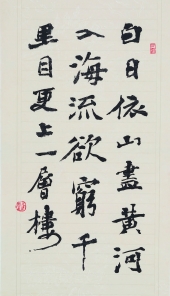 白日依山盡黃河
入海流欲窮千
黑目更上一層樓